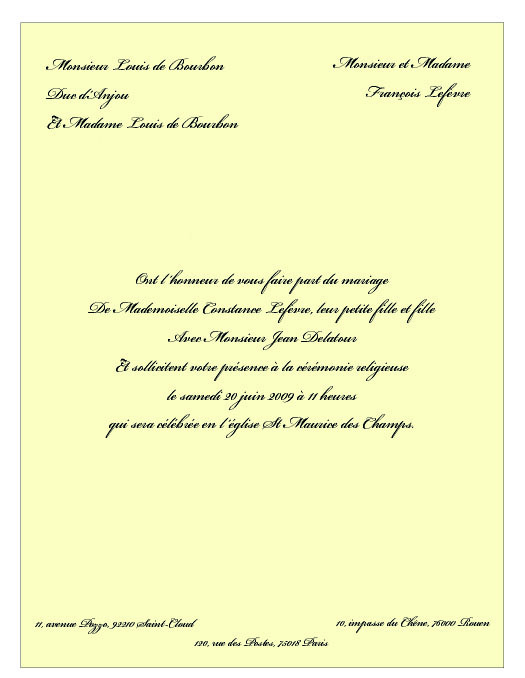 Monsieur Louis de Bourbon
Duc d'Anjou
Et Madame Louis de Bourbon
Monsieur et Madame
François Lefevre
Ont l'honneur de vous faire part du mariage
De Mademoiselle Constance Lefevre, leur petite fille et fille
Avec Monsieur Jean Delatour
Et sollicitent votre présence à la cérémonie religieuse
le samedi 20 juin 2009 à 11 heures
qui sera célébrée en l'église St Maurice des Champs.
11, avenue Pozzo, 92210 Saint-Cloud
10, impasse du Chêne, 76000 Rouen
120, rue des Postes, 75018 Paris